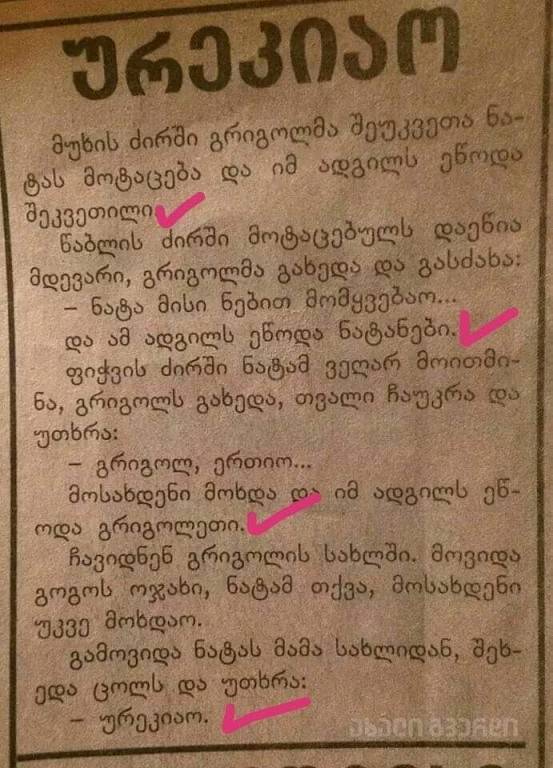 ურეკიაო
მუხის ძირში გრიგოლმა შეუკვეთა ნა-
ტას მოტაცება და იმ ადგილს ეწოდა
შეკვეთილი
წაბლის ძირში მოტაცებულს დაეწია
მდევარი, გრიგოლმა გახედა და გასძახა:
– ნატა მისი ნებით მომყვებაო...
და ამ ადგილს ეწოდა ნატანები.
ფიჭვის ძირში ნატამ ვეღარ მოითმი-
ნა, გრიგოლს გახედა, თვალი ჩაუკრა და
უთხრა:
– გრიგოლ, ერთიო...
მოსახდენი მოხდა და იმ ადგილს ეწ-
ოდა გრიგოლეთი.
ჩავიდნენ გრიგოლის სახლში. მოვიდა
გოგოს ოჯახი, ნატამ თქვა, მოსახდენი
უკვე მოხდაო.
გამოვიდა ნატას მამა სახლიდან, შეხ-
ედა ცოლს და უთხრა:
– ურეკიაო.
ახალი გვერდი